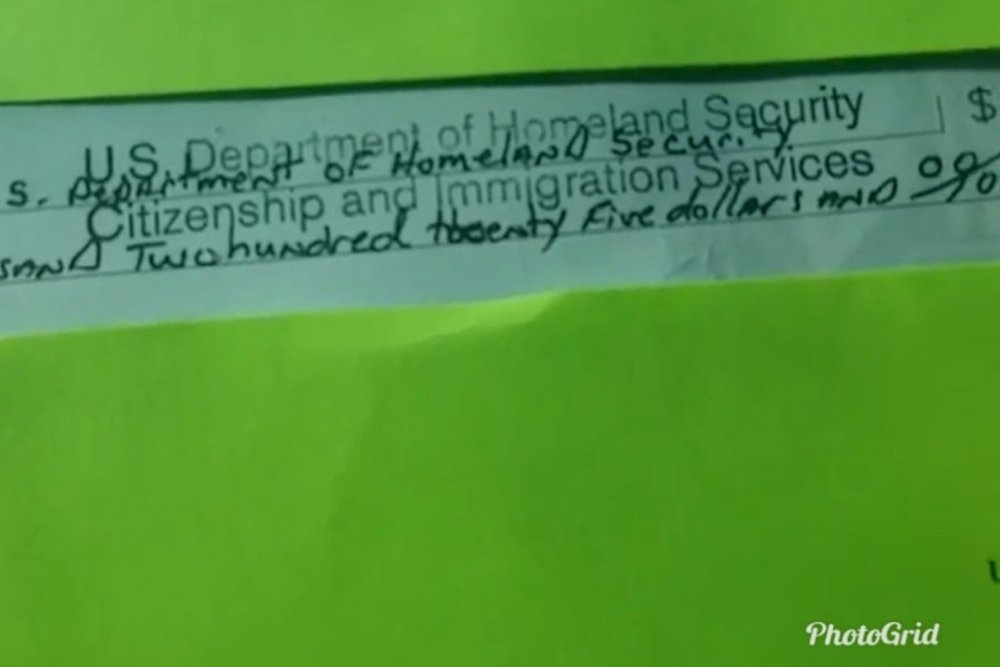 U.S. Department of Homeland Security $
S. Department of Homeland Security
Citizenship and Immigration Services
sand Two hundred twenty Five dollars and 00/
PhotoGrid